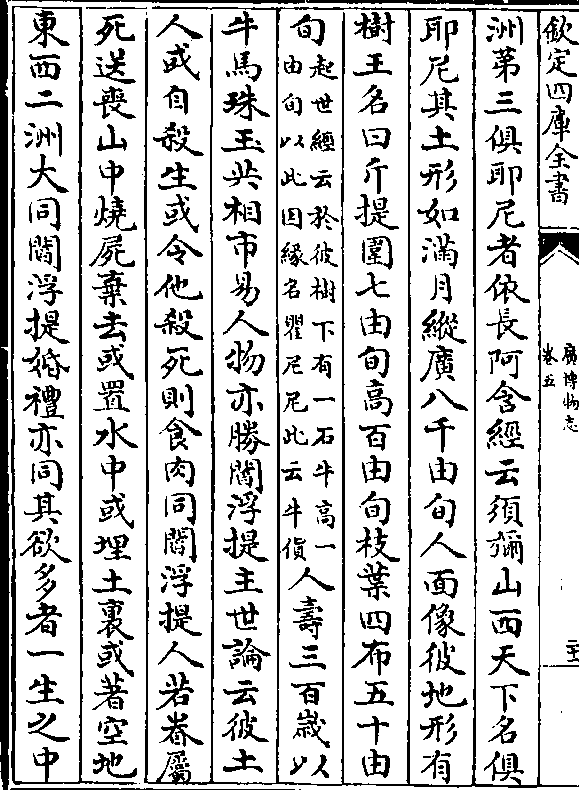 欽定四庫全書
廣博物志
卷五
二十一
洲第三俱耶尼者依長阿含經云須彌山西天下名俱
耶尼其土形如滿月縱廣八千由旬人面像彼地形有
樹王名曰斤提圍七由旬高百由旬枝葉四布五十由
旬起世經云於彼樹下有一石牛高一由旬以此因緣名瞿尼尼此云牛貨人壽三百歲以
牛馬珠玉共相市易人物亦勝閻浮提主世論云彼土
人或自殺生或令他殺死則食肉同閻浮提人若眷屬
死送喪山中燒屍棄去或置水中或埋土裏或著空地
東西二洲大同閻浮提婚禮亦同其欲多者一生之中